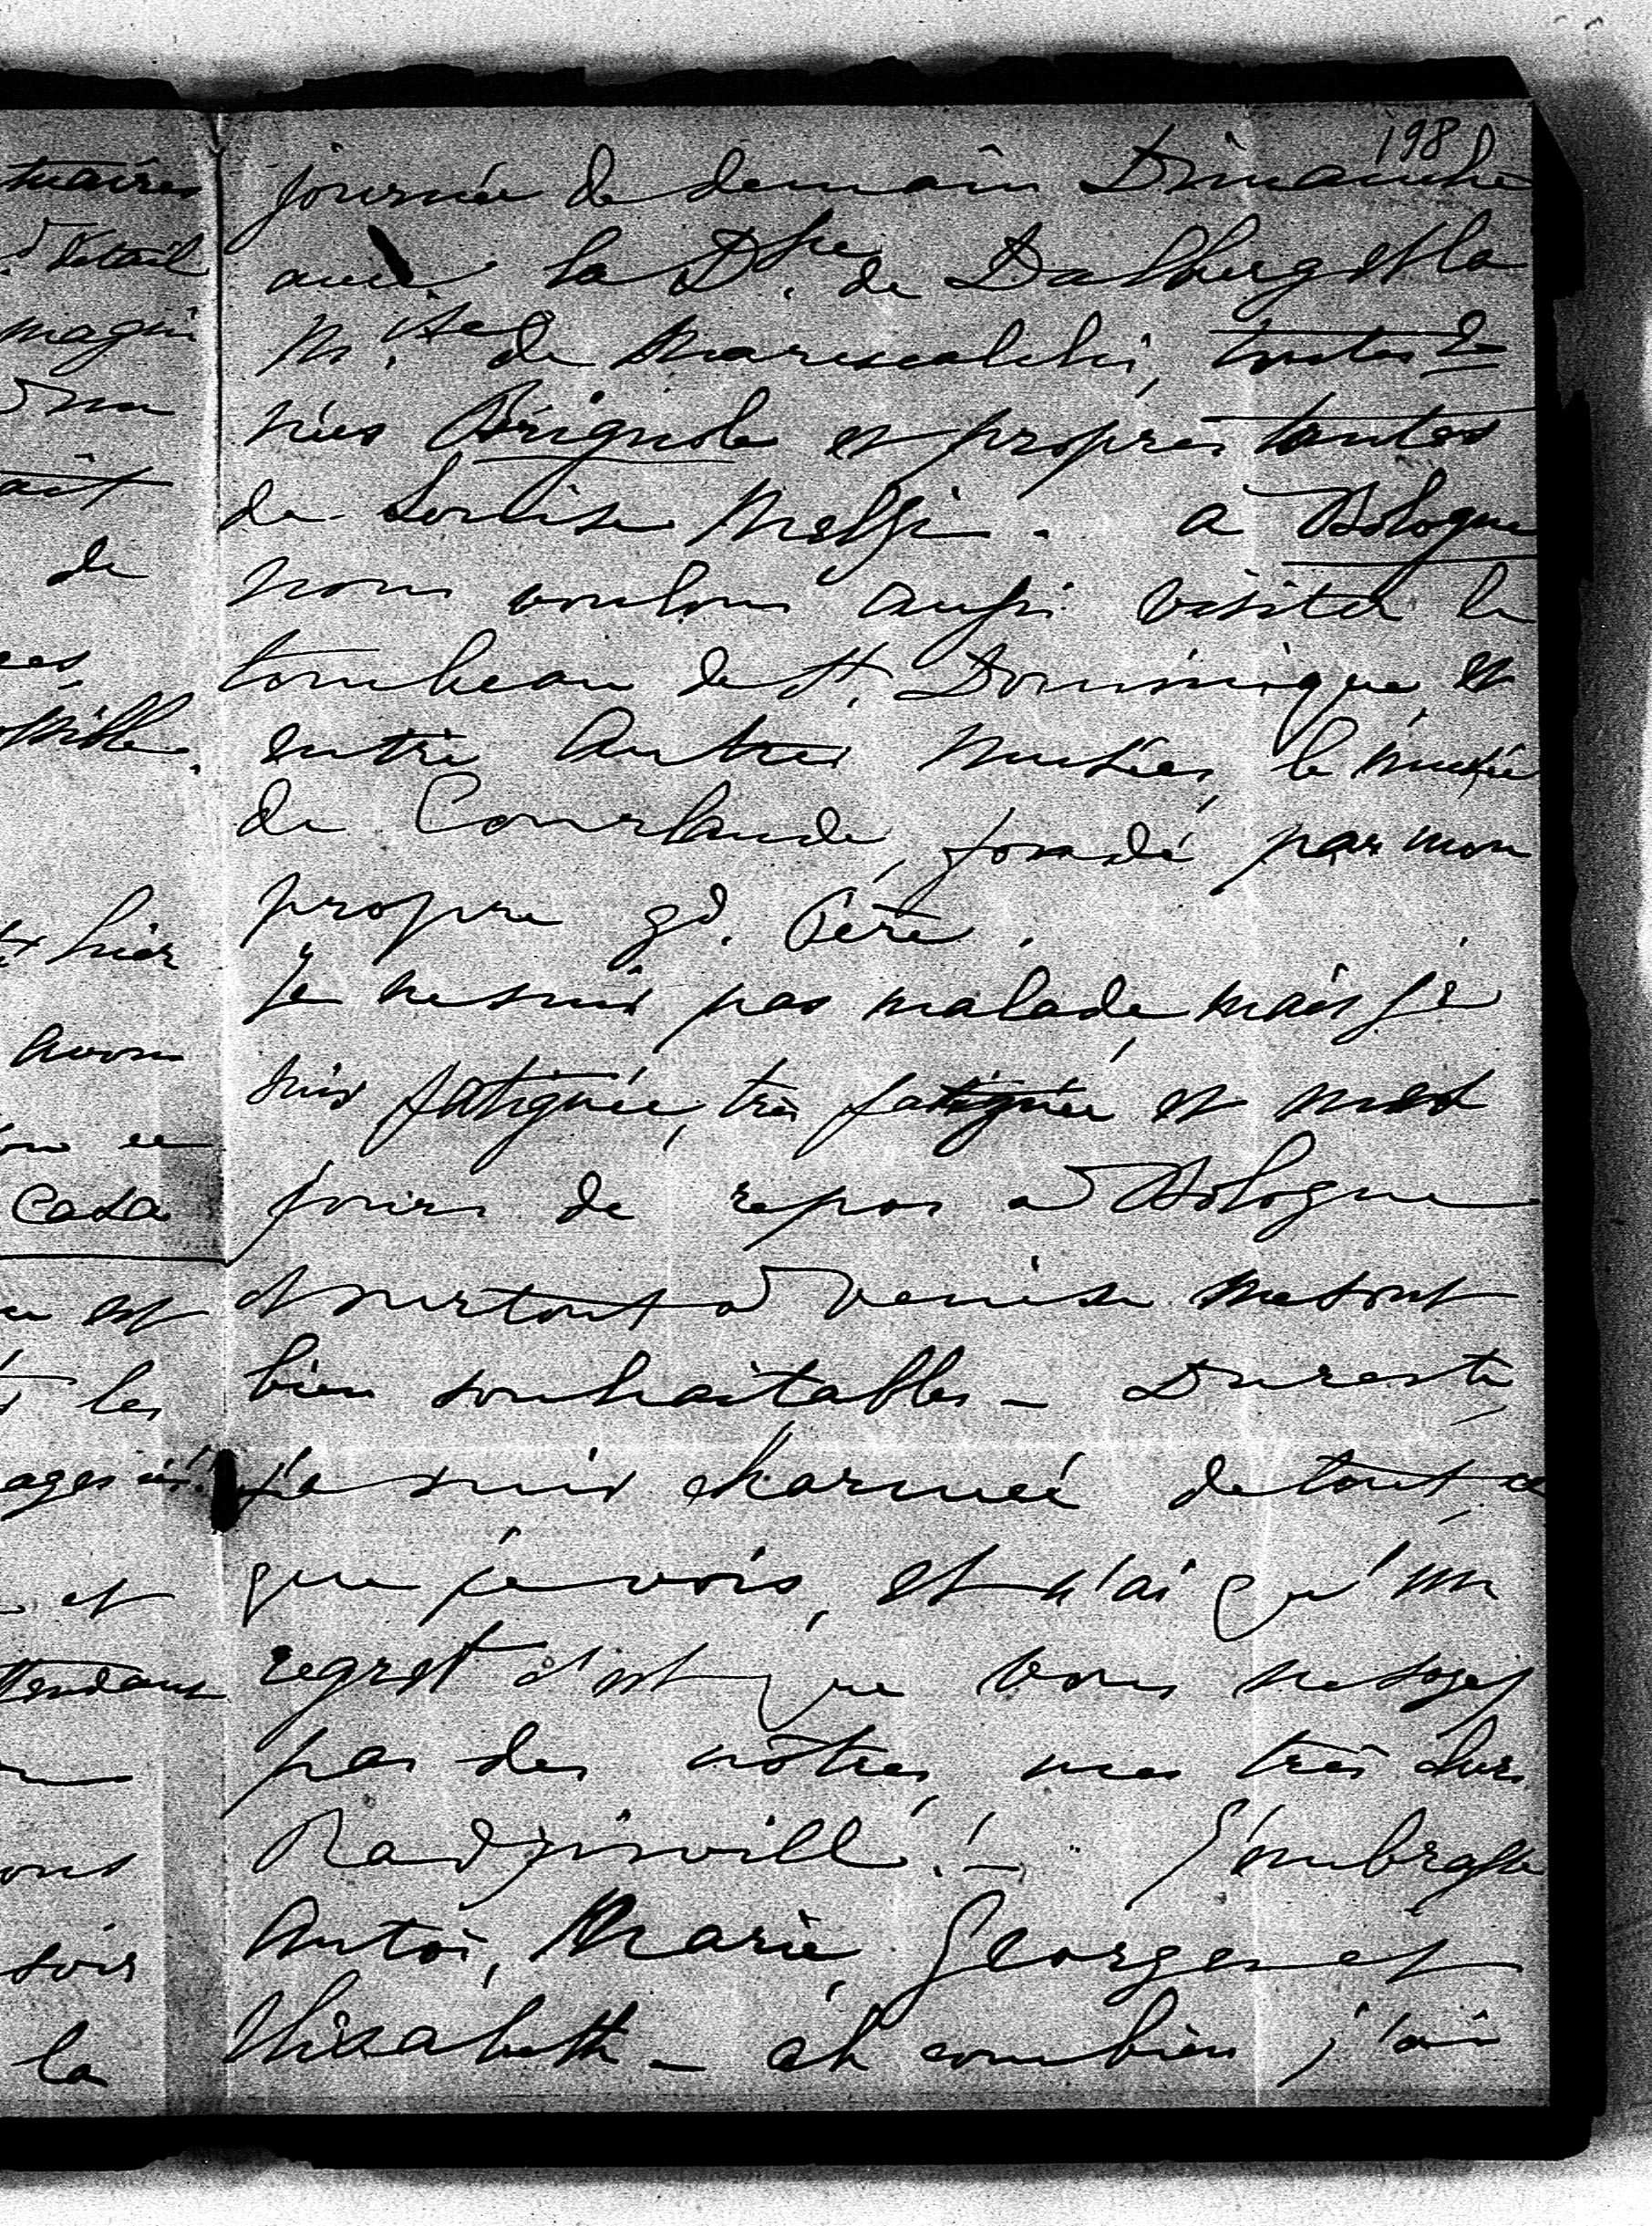 198
journée de demain Dimanche
avec la D.sse de Dalberg et la
M.ise de Marescalchi, toutes 2
nées Brignole et propres tantes
de Louise Melfi. à Bologne
nous voulons aussi visiter le
tombeau de St. Dominique, et
entre autres musées, le musée
de Courlande, fondé par mon
propre gd. Père.
Je ne suis pas malade, mais je
suis fatiguée, très fatiguée et mes
jours de repos à Bologne
et surtout à Venise me sont
bien souhaitables – Du reste
je suis charmée de tout ce
que je vois, et n'ai qu'un
regret c'est que vous ne soyez
pas des nôtres, mes très chers
Radziwill! – J'embrasse
Antoi, Marie, Georges et
Elisabeth – ah combien j'ai
tuaires
détail
magni
d'un
ait
de
hier
avons
Casa
est
les
et
ttendant
soir
la